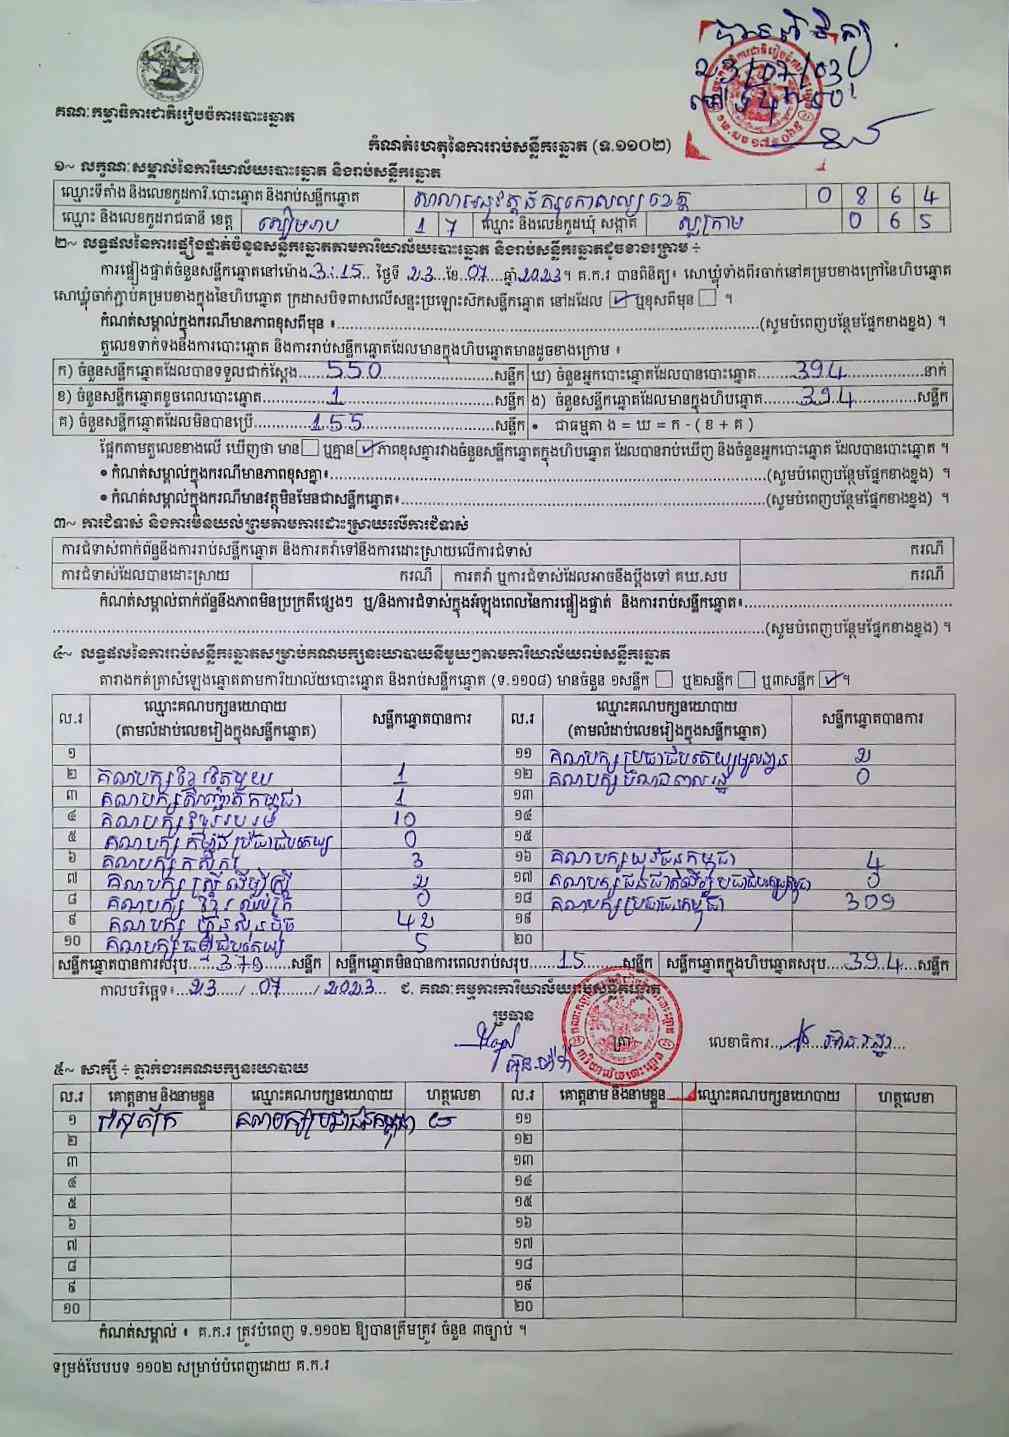 បានពិនិត្យ
23/07/03
គណៈកម្មាធិការជាតិរៀបចំការបោះឆ្នោត
កំណត់ហេតុនៃការរាប់សន្លឹកឆ្នោត (ទ.១១០២)
១~ លក្ខណៈសម្គាល់នៃការិយាល័យបោះឆ្នោត និងរាប់សន្លឹកឆ្នោត
ឈ្មោះទីតាំង និងលេខកូដការិ.បោះឆ្នោត និងរាប់សន្លឹកឆ្នោត 0 8 6 4
ឈ្មោះ និងលេខកូដរាជធានី ខេត្ត សៀមរាប 1 7 ឈ្មោះ និងលេខកូដឃុំ សង្កាត់ ស្លក្រាម 0 6 5
២~ លទ្ធផលនៃការផ្ទៀងផ្ទាត់ចំនួនសន្លឹកឆ្នោតតាមការិយាល័យបោះឆ្នោត និងរាប់សន្លឹកឆ្នោតដូចខាងក្រោម ÷
ការផ្ទៀងផ្ទាត់ចំនួនសន្លឹកឆ្នោតនៅម៉ោង 3:15 ថ្ងៃទី 23 ខែ 07 ឆ្នាំ 2023 ។ គ.ក.រ បានពិនិត្យ៖ សោឃ្លុំទាំងពីរចាក់នៅគម្របខាងក្រៅនៃហិបឆ្នោត
សោឃ្លុំចាក់ភ្ជាប់គម្របខាងក្នុងនៃហិបឆ្នោត ក្រដាសបិទពាសលើសន្ទះប្រឡោះសិកសន្លឹកឆ្នោត នៅដដែល ☑ ឬខុសពីមុន ☐ ។
កំណត់សម្គាល់ក្នុងករណីមានភាពខុសពីមុន ៖ (សូមបំពេញបន្ថែមផ្នែកខាងខ្នង) ។
តួលេខទាក់ទងនឹងការបោះឆ្នោត និងការរាប់សន្លឹកឆ្នោតដែលមានក្នុងហិបឆ្នោតមានដូចខាងក្រោម ៖
ក) ចំនួនសន្លឹកឆ្នោតដែលបានទទួលជាក់ស្តែង 550 សន្លឹក ឃ) ចំនួនអ្នកបោះឆ្នោតដែលបានបោះឆ្នោត 394 នាក់
ខ) ចំនួនសន្លឹកឆ្នោតខូចពេលបោះឆ្នោត 1 សន្លឹក ង) ចំនួនសន្លឹកឆ្នោតដែលមានក្នុងហិបឆ្នោត 394 សន្លឹក
គ) ចំនួនសន្លឹកឆ្នោតដែលមិនបានប្រើ 155 សន្លឹក • ជាធម្មតា ង = ឃ = ក - ( ខ + គ )
ផ្អែកតាមតួលេខខាងលើ ឃើញថា មាន ☐ ឬគ្មាន ☑ ភាពខុសគ្នារវាងចំនួនសន្លឹកឆ្នោតក្នុងហិបឆ្នោត ដែលបានរាប់ឃើញ និងចំនួនអ្នកបោះឆ្នោត ដែលបានបោះឆ្នោត ។
• កំណត់សម្គាល់ក្នុងករណីមានភាពខុសគ្នា៖ (សូមបំពេញបន្ថែមផ្នែកខាងខ្នង) ។
• កំណត់សម្គាល់ក្នុងករណីមានវត្ថុមិនមែនជាសន្លឹកឆ្នោត៖ (សូមបំពេញបន្ថែមផ្នែកខាងខ្នង) ។
៣~ ការជំទាស់ និងការមិនយល់ព្រមតាមការដោះស្រាយលើការជំទាស់
ការជំទាស់ពាក់ព័ន្ធនឹងការរាប់សន្លឹកឆ្នោត និងការតវ៉ាទៅនឹងការដោះស្រាយលើការជំទាស់ ករណី
ការជំទាស់ដែលបានដោះស្រាយ ករណី ការតវ៉ា ឬការជំទាស់ដែលអាចនឹងប្តឹងទៅ គឃ.សប ករណី
កំណត់សម្គាល់ពាក់ព័ន្ធនឹងភាពមិនប្រក្រតីផ្សេងៗ ឬ/និងការជំទាស់ក្នុងអំឡុងពេលនៃការផ្ទៀងផ្ទាត់ និងការរាប់សន្លឹកឆ្នោត៖
(សូមបំពេញបន្ថែមផ្នែកខាងខ្នង) ។
៤~ លទ្ធផលនៃការរាប់សន្លឹកឆ្នោតសម្រាប់គណបក្សនយោបាយនីមួយៗតាមការិយាល័យរាប់សន្លឹកឆ្នោត
តារាងកត់ត្រាសំឡេងឆ្នោតតាមការិយាល័យបោះឆ្នោត និងរាប់សន្លឹកឆ្នោត (ទ.១១០៨) មានចំនួន ១សន្លឹក ☐ ឬ២សន្លឹក ☐ ឬ៣សន្លឹក ☑ ។
ល.រ ឈ្មោះគណបក្សនយោបាយ (តាមលំដាប់លេខរៀងក្នុងសន្លឹកឆ្នោត) សន្លឹកឆ្នោតបានការ ល.រ ឈ្មោះគណបក្សនយោបាយ (តាមលំដាប់លេខរៀងក្នុងសន្លឹកឆ្នោត) សន្លឹកឆ្នោតបានការ
១ ១១ គណបក្សប្រជាធិបតេយ្យមូលដ្ឋាន 2
២ គណបក្សខ្មែរតែមួយ 1 ១២ គណបក្ស 0
៣ គណបក្សកម្ពុជា 1 ១៣
៤ គណបក្ស 10 ១៤
៥ គណបក្ស កម្លាំងប្រជាធិបតេយ្យ 0 ១៥
៦ គណបក្ស កសិករ 3 ១៦ គណបក្សយុវជនកម្ពុជា 4
៧ គណបក្ស ស្ត្រីដើម្បីស្ត្រី 2 ១៧ គណបក្សជនជាតិដើមប្រជាធិបតេយ្យកម្ពុជា 0
៨ គណបក្ស ខ្មែរឈប់ក្រ 0 ១៨ គណបក្សប្រជាជនកម្ពុជា 309
៩ គណបក្ស ហ្វ៊ុនស៊ិនប៉ិច 42 ១៩
១០ គណបក្សធម្មាធិបតេយ្យ 5 ២០
សន្លឹកឆ្នោតបានការសរុប 379 សន្លឹក សន្លឹកឆ្នោតមិនបានការពេលរាប់សរុប 15 សន្លឹក សន្លឹកឆ្នោតក្នុងហិបឆ្នោតសរុប 394 សន្លឹក
កាលបរិច្ឆេទ៖ 23 / 07 / 2023 ជ. គណៈកម្មការការិយាល័យរាប់សន្លឹកឆ្នោត
ប្រធាន
ត្រា លេខាធិការ
៥~ សាក្សី ÷ ភ្នាក់ងារគណបក្សនយោបាយ
ល.រ គោត្តនាម និងនាមខ្លួន ឈ្មោះគណបក្សនយោបាយ ហត្ថលេខា ល.រ គោត្តនាម និងនាមខ្លួន ឈ្មោះគណបក្សនយោបាយ ហត្ថលេខា
១ គណបក្សប្រជាជនកម្ពុជា ១១
២ ១២
៣ ១៣
៤ ១៤
៥ ១៥
៦ ១៦
៧ ១៧
៨ ១៨
៩ ១៩
១០ ២០
កំណត់សម្គាល់ ៖ គ.ក.រ ត្រូវបំពេញ ទ.១១០២ ឱ្យបានត្រឹមត្រូវ ចំនួន ៣ច្បាប់ ។
ទម្រង់បែបបទ ១១០២ សម្រាប់បំពេញដោយ គ.ក.រ